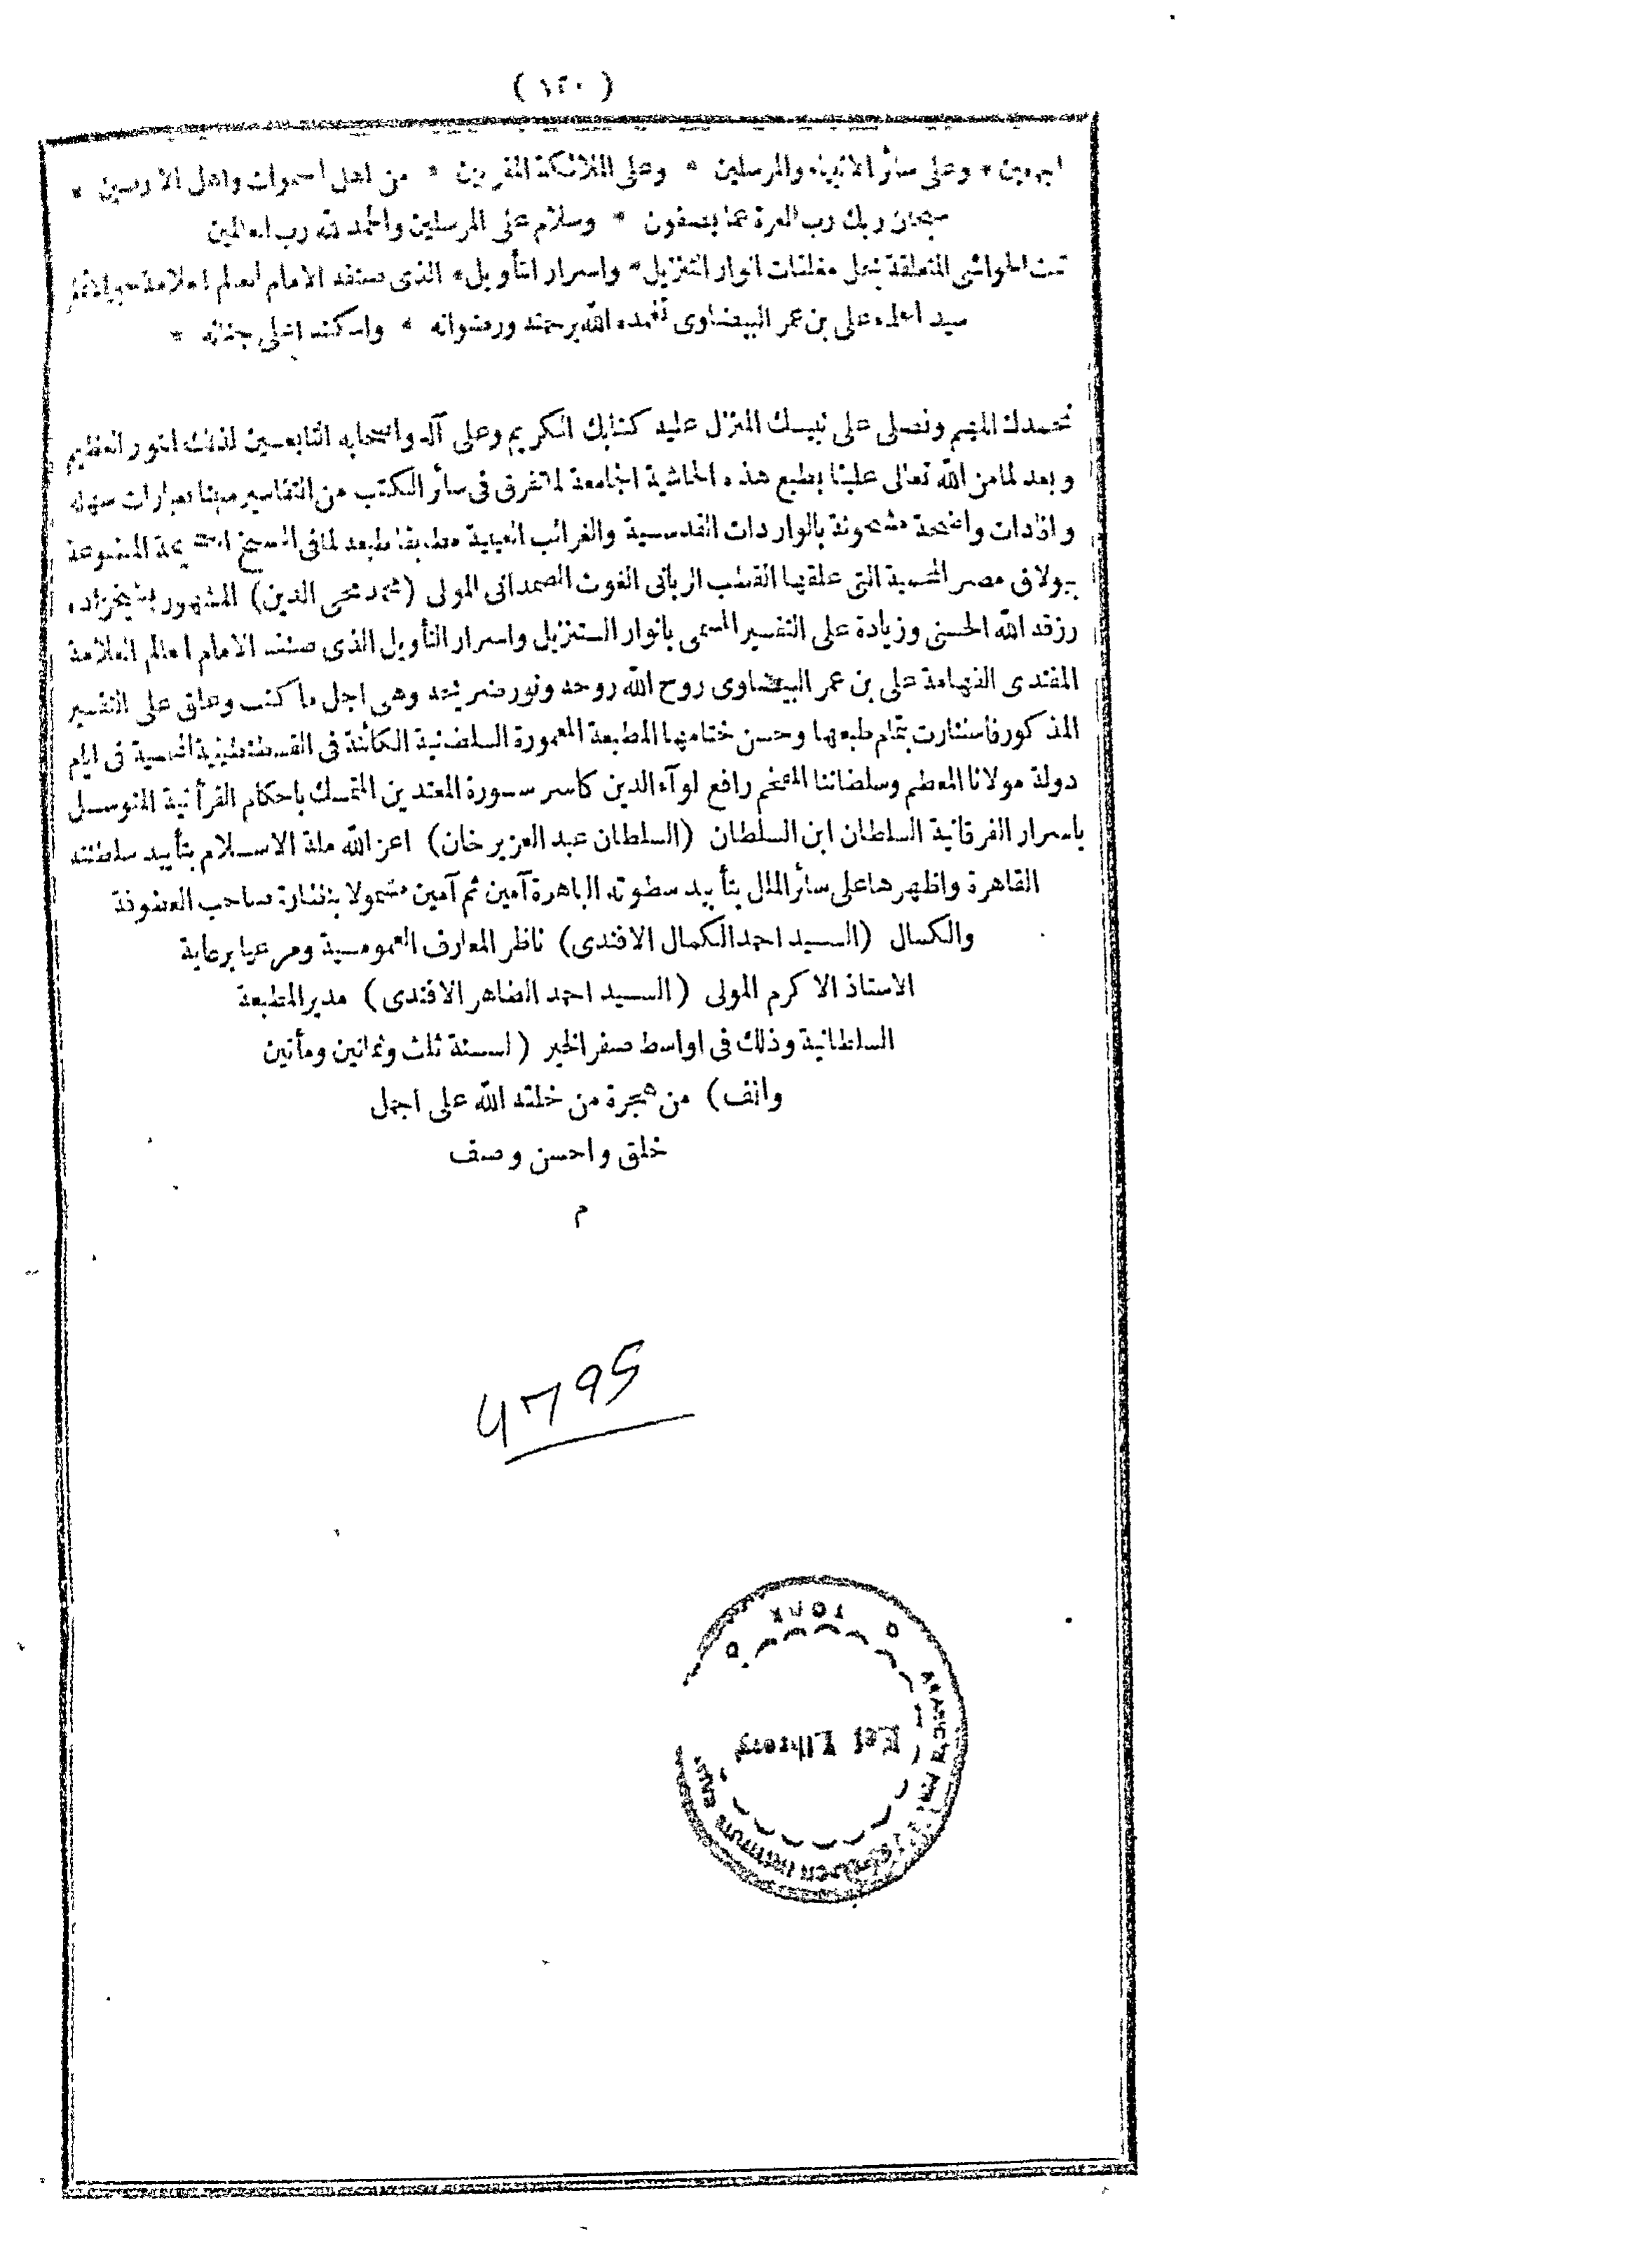 ( ١٢٠ )
اجمعين * وعلى سائر الانبياء والمرسلين * وعلى الملائكة المقربين * من اهل السموات واهل الارضين *
سبحان ربك رب العزة عما يصفون * وسلام على المرسلين والحمد لله رب العالمين
تمت الحواشى المتعلقة بحل مغلقات انوار التنزيل * واسرار التأويل * الذى صنفه الامام العالم العلامة
سيد العلماء على بن عمر البيضاوى تغمده الله برحمته ورضوانه * واسكنه اعلى جنانه *
نحمدك اللهم ونصلى على نبيك المنزل عليه كتابك الكريم وعلى آله واصحابه التابعين لذلك النور العظيم
وبعد لما من الله تعالى علينا بطبع هذه الحاشية الجامعة لما تفرق فى سائر الكتب من التفاسير مبينا بعبارات سهلة
وافادات واضحة مشحونة بالواردات القدسية والغرائب الغيبية مطابقا طبعه لما فى النسخ الصحيحة المطبوعة
ببولاق مصر المحمية التى علقها القطب الربانى الغوث الصمدانى المولى (محمد محى الدين) المشهور بشيخزاده
رزقه الله الحسنى وزيادة على التفسير المسمى بانوار التنزيل واسرار التأويل الذى صنفه الامام العالم العلامة
المقتدى الفهامة على بن عمر البيضاوى روح الله روحه ونور ضريحه وهى اجل ما كتب وعلق على التفسير
المذكور فاستنارت بتمام طبعها وحسن ختامها المطبعة المعمورة السلطانية الكائنة فى القسطنطينية المحمية فى ايام
دولة مولانا المعظم وسلطاننا المفخم رافع لوآء الدين كاسر سورة المعتدين المتمسك باحكام القرأنية المتوسل
باسرار الفرقانية السلطان ابن السلطان (السلطان عبد العزيز خان) اعز الله ملة الاسلام بتأييد سلطنته
القاهرة واظهرها على سائر الملل بتأييد سطوته الباهرة آمين ثم آمين مشمولا بنظارة صاحب العطوفة
والكمال (السيد احمد الكمال الافندى) ناظر المعارف العمومية ومرعيا برعاية
الاستاذ الاكرم المولى (السيد احمد الطاهر الافندى) مدير المطبعة
السلطانية وذلك فى اواسط صفر الخير (لسنة ثلث وثمانين ومأتين
والف) من هجرة من خلقه الله على اجمل
خلق واحسن وصف
م
4795
TONK
Ref Library